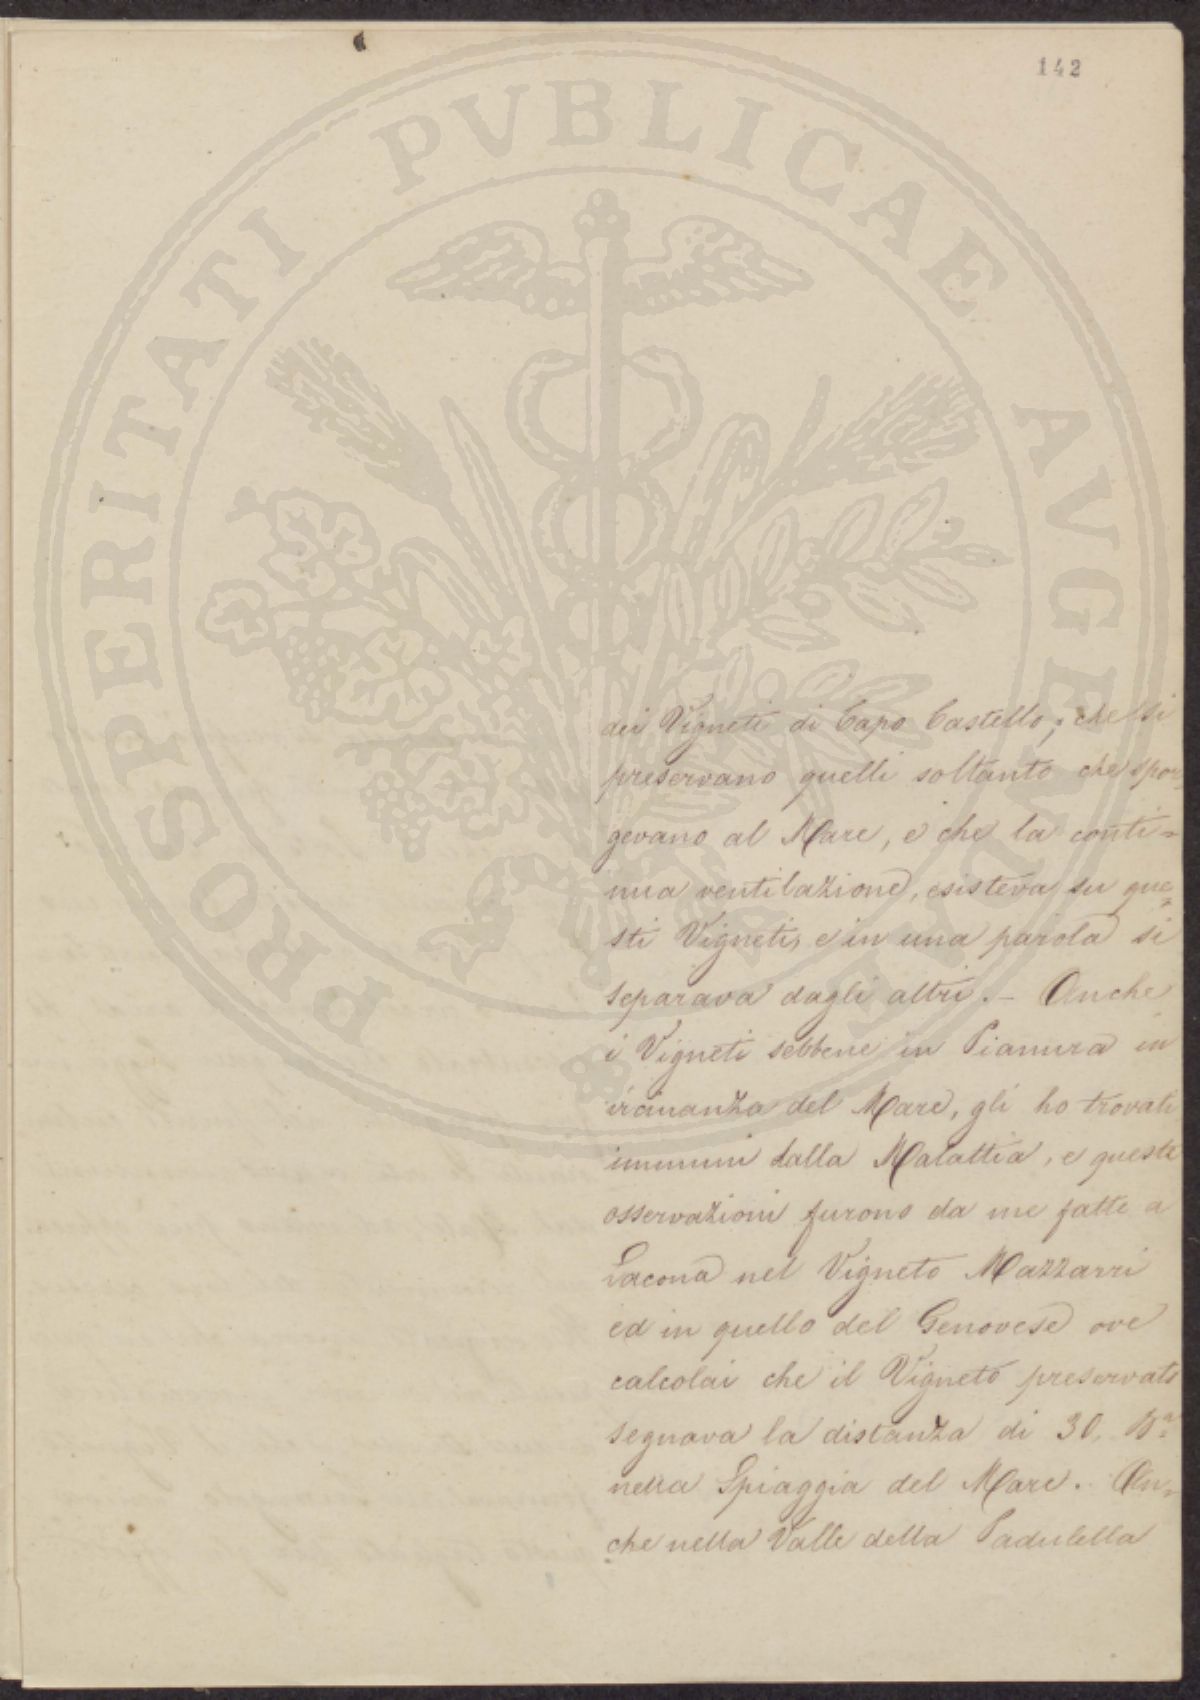 142
PROSPERITATI PUBLICAE AUGENDAE
dei Vigneti di Capo Castello, che si
preservano quelli soltanto che spor=
gevano al Mare, e che la conti=
nua ventilazione, esisteva su que=
sti Vigneti, e in una parola si
separava dagli altri. – Anche
i Vigneti sebbene in Pianura in
vicinanza del Mare, gli ho trovati
immuni dalla Malattia, e queste
osservazioni furono da me fatte a
Lacona nel Vigneto Mazzarri
ed in quello del Genovese ove
calcolai che il Vigneto preservato
segnava la distanza di 30. Ba
nella Spiaggia del Mare. An=
che nella Valle della Paduletta